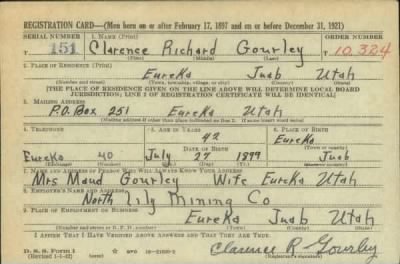 REGISTRATION CARD—(Men born on or after February 17, 1897 and on or before December 31, 1921)
SERIAL NUMBER 1. NAME (Print) ORDER NUMBER
151 Clarence Richard Gourley 10,324
(First) (Middle) (Last)
2. PLACE OF RESIDENCE (Print)
Eureka Juab Utah
(Number and street) (Town, township, village, or city) (County) (State)
[THE PLACE OF RESIDENCE GIVEN ON THE LINE ABOVE WILL DETERMINE LOCAL BOARD
JURISDICTION; LINE 2 OF REGISTRATION CERTIFICATE WILL BE IDENTICAL]
3. MAILING ADDRESS
P.O. Box 251 Eureka Utah
[Mailing address if other than place indicated on line 2. If same insert word same]
4. TELEPHONE 5. AGE IN YEARS 6. PLACE OF BIRTH
42 Eureka
DATE OF BIRTH
Eureka 40 July 27 1899 Juab
7. NAME AND ADDRESS OF PERSON WHO WILL ALWAYS KNOW YOUR ADDRESS
Mrs Maud Gourley Wife Eureka Utah
8. EMPLOYER'S NAME AND ADDRESS
North Lily Mining Co
9. PLACE OF EMPLOYMENT OR BUSINESS
Eureka Juab Utah
(Number and street or R. F. D. number) (Town) (County) (State)
I AFFIRM THAT I HAVE VERIFIED ABOVE ANSWERS AND THAT THEY ARE TRUE.
D. S. S. Form 1
(Revised 1-1-42) (over) Clarence R. Gourley